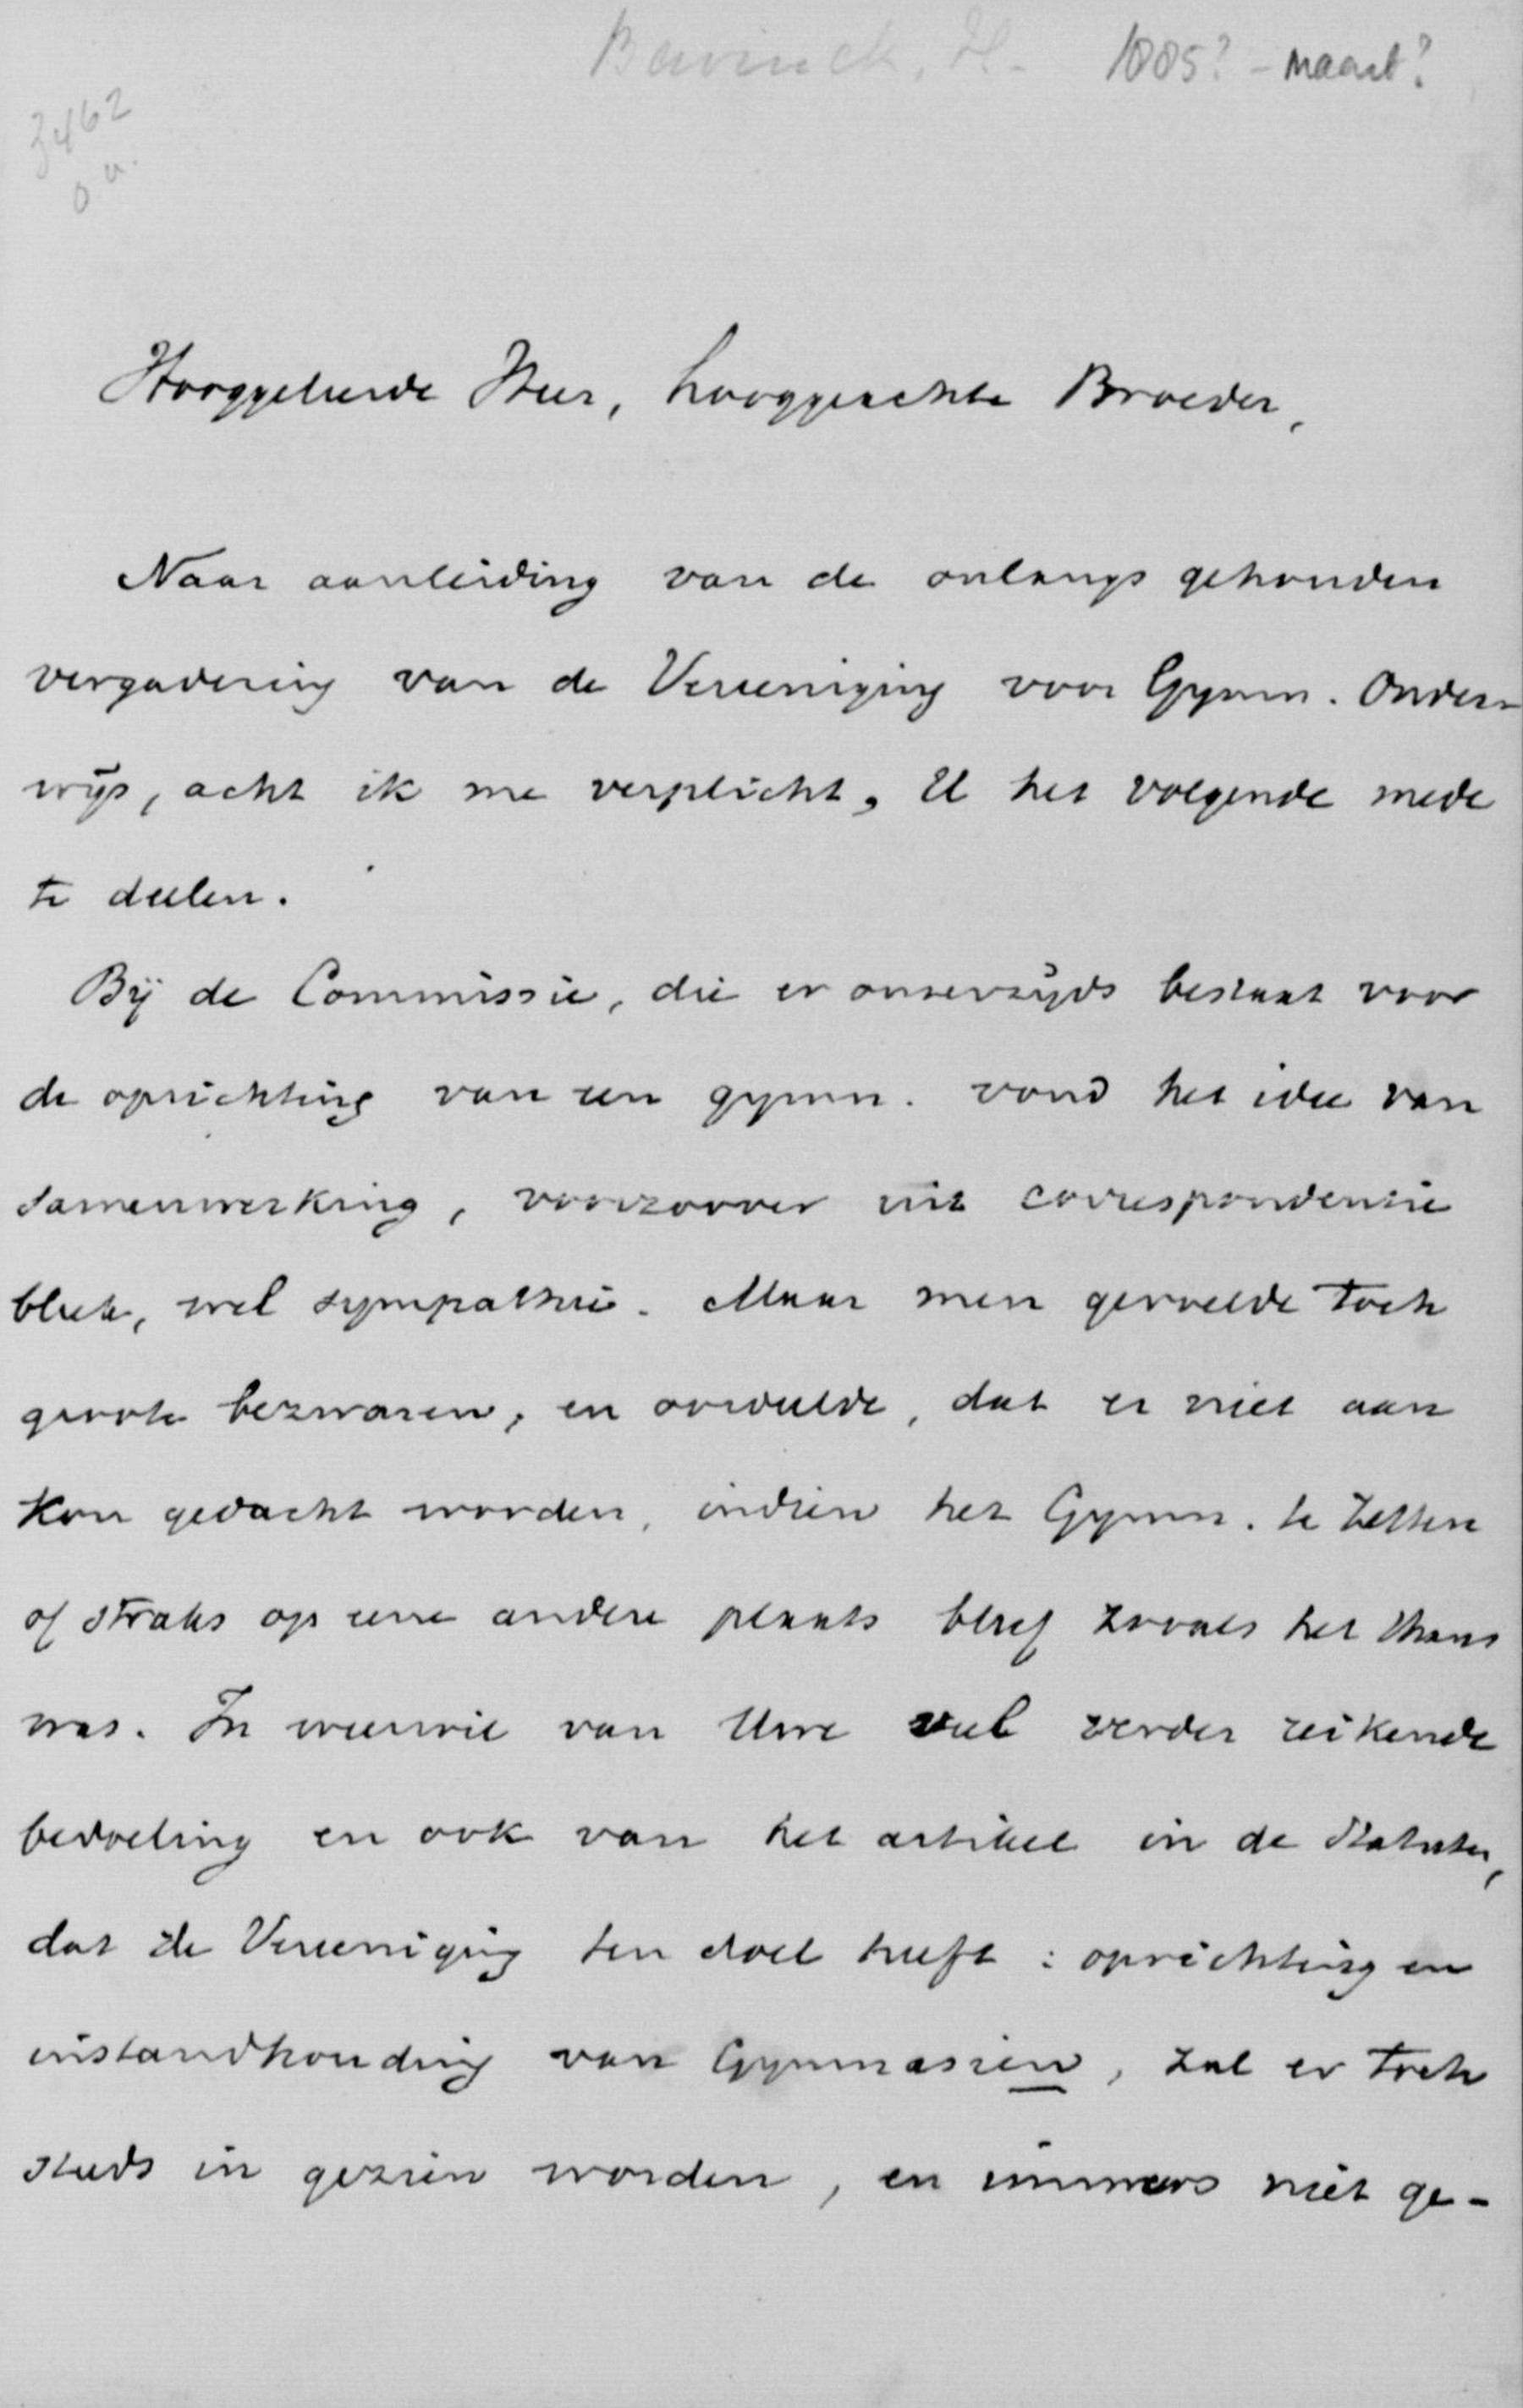 Bavinck, H. 1885? - maart?
3462
Hooggeleerde Heer, hooggeachte Broeder,
Naar aanleiding van de onlangs gehouden
vergadering van de Vereeniging voor Gymn. Onder-
wijs, acht ik me verplicht, U het volgende mede
te deelen.
Bij de Commissie, die er onzerzijds bestaat voor
de oprichting van een gymn. vond het idee van
samenwerking, voorzoover uit correspondentie
bleek, wel sympathie. Maar men gevoelde toch
groote bezwaren, en oordeelde, dat er niet aan
kon gedacht worden, indien het Gymn. te Zetten
of straks op eene andere plaats bleef zooals het thans
was. In weerwil van Uwe veel verder reikende
bedoeling en ook van het artikel in de Statuten,
dat de Vereeniging ten doel heeft: oprichting en
instandhouding van Gymnasien, zal er toch
steeds in gezien worden, en immers niet ge-